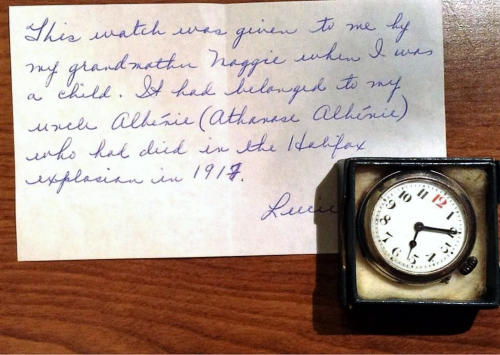 This watch was given to me by
my grandmother Maggie when I was
a child. It had belonged to my
uncle Albénie (Athanase Albénie)
who had died in the Halifax
explosion in 1917.
12
1
2
3
4
5
6
7
8
9
10
11